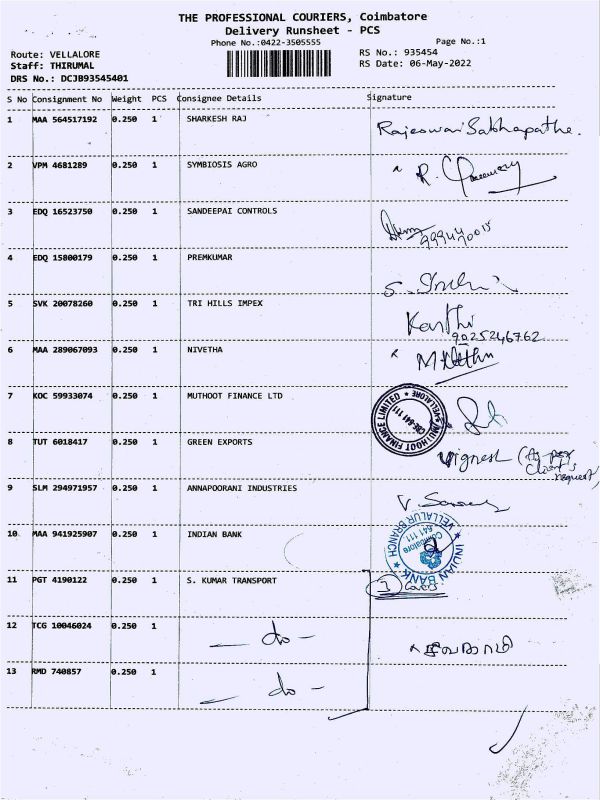 THE PROFESSIONAL COURIERS, Coimbatore
Delivery Runsheet - PCS
Phone No.:0422-3505555
Page No.:1
Route: VELLALORE
RS No.: 935454
Staff: THIRUMAL
RS Date: 06-May-2022
DRS No.: DCJB93545401
S No Consignment No Weight PCS Consignee Details Signature
1 MAA 564517192 0.250 1 SHARKESH RAJ
Rajeswari Sabhapathe.
2 VPM 4681289 0.250 1 SYMBIOSIS AGRO
R.
3 EDQ 16523750 0.250 1 SANDEEPAI CONTROLS
4 EDQ 15800179 0.250 1 PREMKUMAR
5 SVK 20078260 0.250 1 TRI HILLS IMPEX
Karthi
9025246762
6 MAA 289067093 0.250 1 NIVETHA
7 KOC 59933074 0.250 1 MUTHOOT FINANCE LTD
MUTHOOT FINANCE LIMITED ★ VELLALORE ★
CBE-641 111
8 TUT 6018417 0.250 1 GREEN EXPORTS
Vignesh (As per
Client's
request)
9 SLM 294971957 0.250 1 ANNAPOORANI INDUSTRIES
10 MAA 941925907 0.250 1 INDIAN BANK
★ INDIAN BANK ★ VELLALUR BRANCH
Coimbatore
641 111
11 PGT 4190122 0.250 1 S. KUMAR TRANSPORT
3 Covers
12 TCG 10046024 0.250 1 — do —
13 RMD 740857 0.250 1 — do —